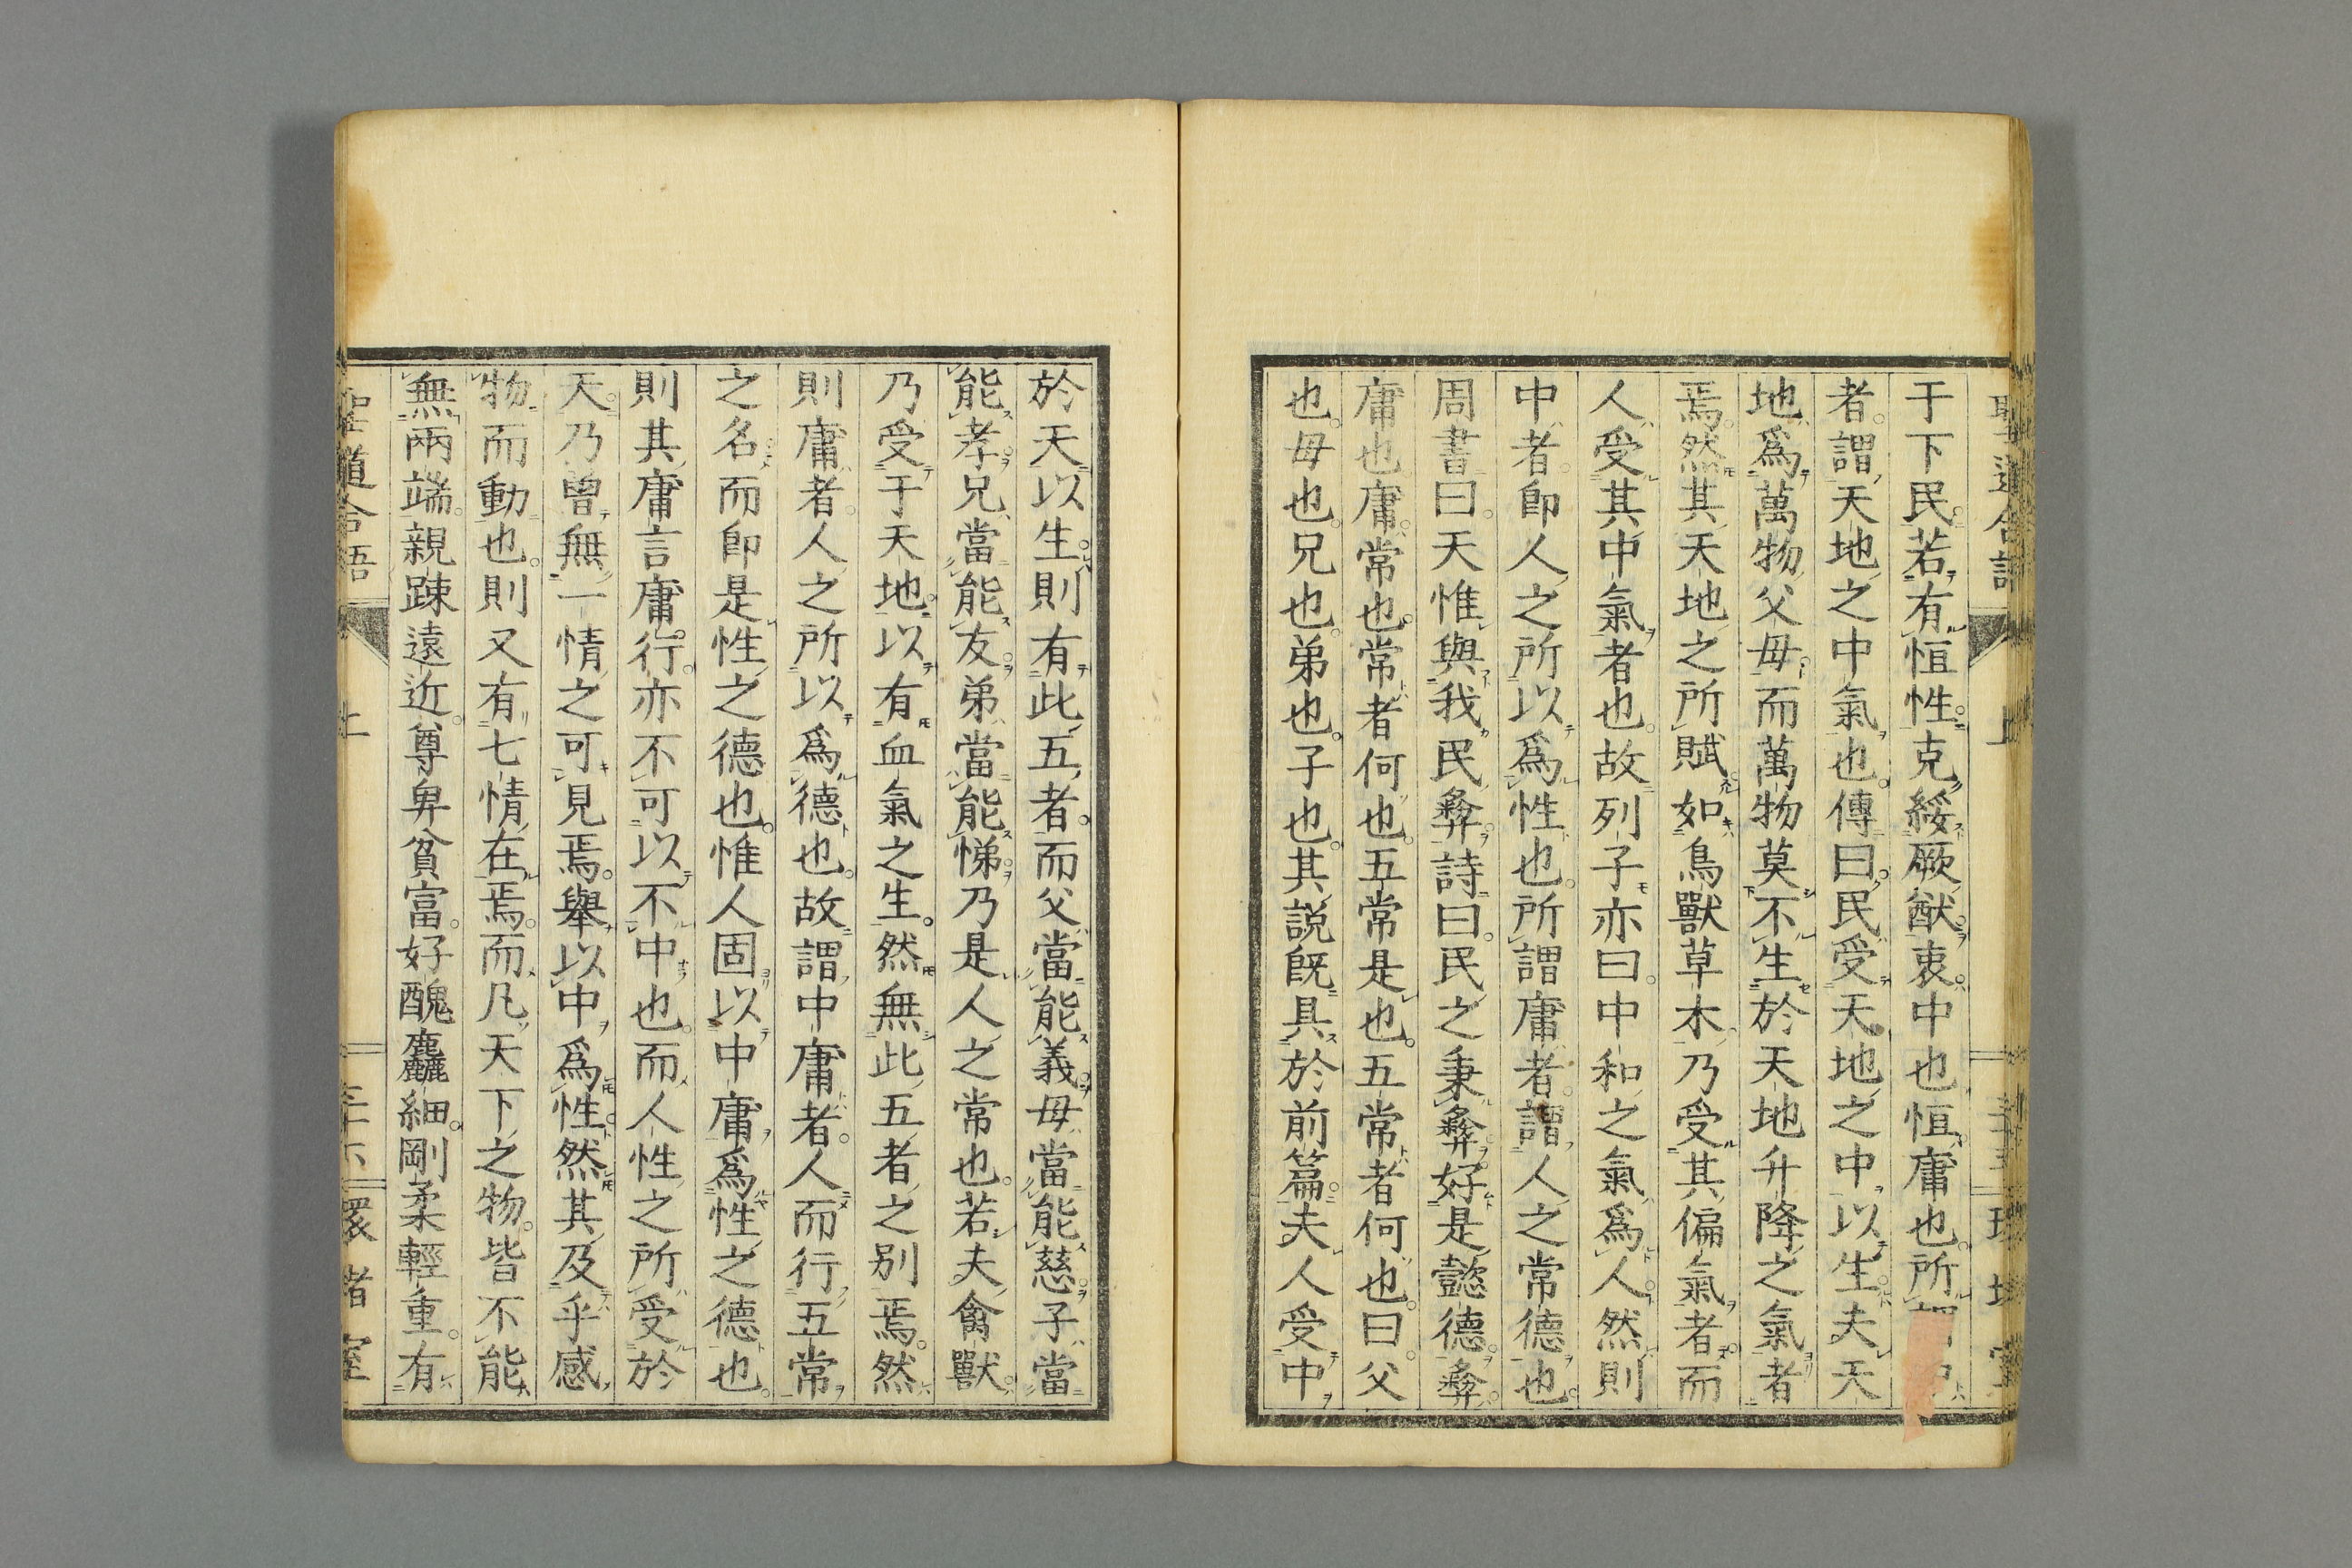 于下民。若有恒性。克綏厥猷。衷。中也恒。庸也。所
者。謂天地之中氣也。傳曰。民受天地之中以生。夫天
地爲萬物父母。而萬物莫不生於天地升降之氣者
焉。然其天地之所賦。如鳥獸草木。乃受其偏氣者。而
人受其中氣者也。故列子亦曰。中和之氣爲人。然則
中者。卽人之所以爲性也。所謂庸者。謂人之常德也。
周書曰。天惟與我民彝。詩曰。民之秉彝。好是懿德。彝。
庸也庸。常也。常者何也。五常是也。五常者何也。曰。父
也。母也。兄也。弟也。子也。其說旣具於前篇。夫人受中
於天以生。則有此五者。而父當能義。母當能慈。子當
能孝。兄當能友。弟當能悌。乃是人之常也。若夫禽獸。
乃受于天地。以有血氣之生。然無此五者之别焉。然
則庸者。人之所以爲德也。故謂中庸者。人而行五常
之名。而卽是性之德也。惟人固以中庸爲性之德也。
則其庸言庸行。亦不可以不中也。而人性之所受於
天。乃曾無一情之可見焉。擧以中爲性。然其及乎感
物而動也。則又有七情在焉。而凡天下之物。皆不能
無兩端。親踈遠近。尊卑貧富。好醜麤細。剛柔輕重。有
聖道合語
上
環堵室